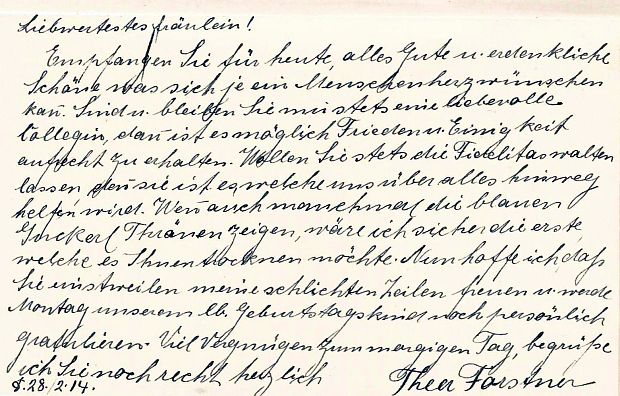 Liebwertestes fräulein!
Empfangen Sie für heute, alles Gute u. erdenkliche
Schöne was sich je ein Menschenherz wünschen
kan̄. Sind u. bleiben Sie mir stets eine liebevolle
Collegin, dan̄ ist es möglich Frieden u. Einigkeit
aufrecht zu erhalten. Wollen Sie stets die Fidelitas walten
lassen den̄ sie ist es welche uns über alles hinweg
helfen wird. Wen̄ auch manchmal die blauen
Guckerl Thränen zeigen, wäre ich sicher die erste
welche es Ihnen trocknen möchte. Nun hoffe ich daß
Sie einstweilen meine schlichten Zeilen freuen u. werde
Montag unserem lb. Geburtstagskind noch persönlich
gratulieren. Viel Vergnügen zum morgigen Tag, begrüße
ich Sie noch recht herzlich
28./2.14. Forstner